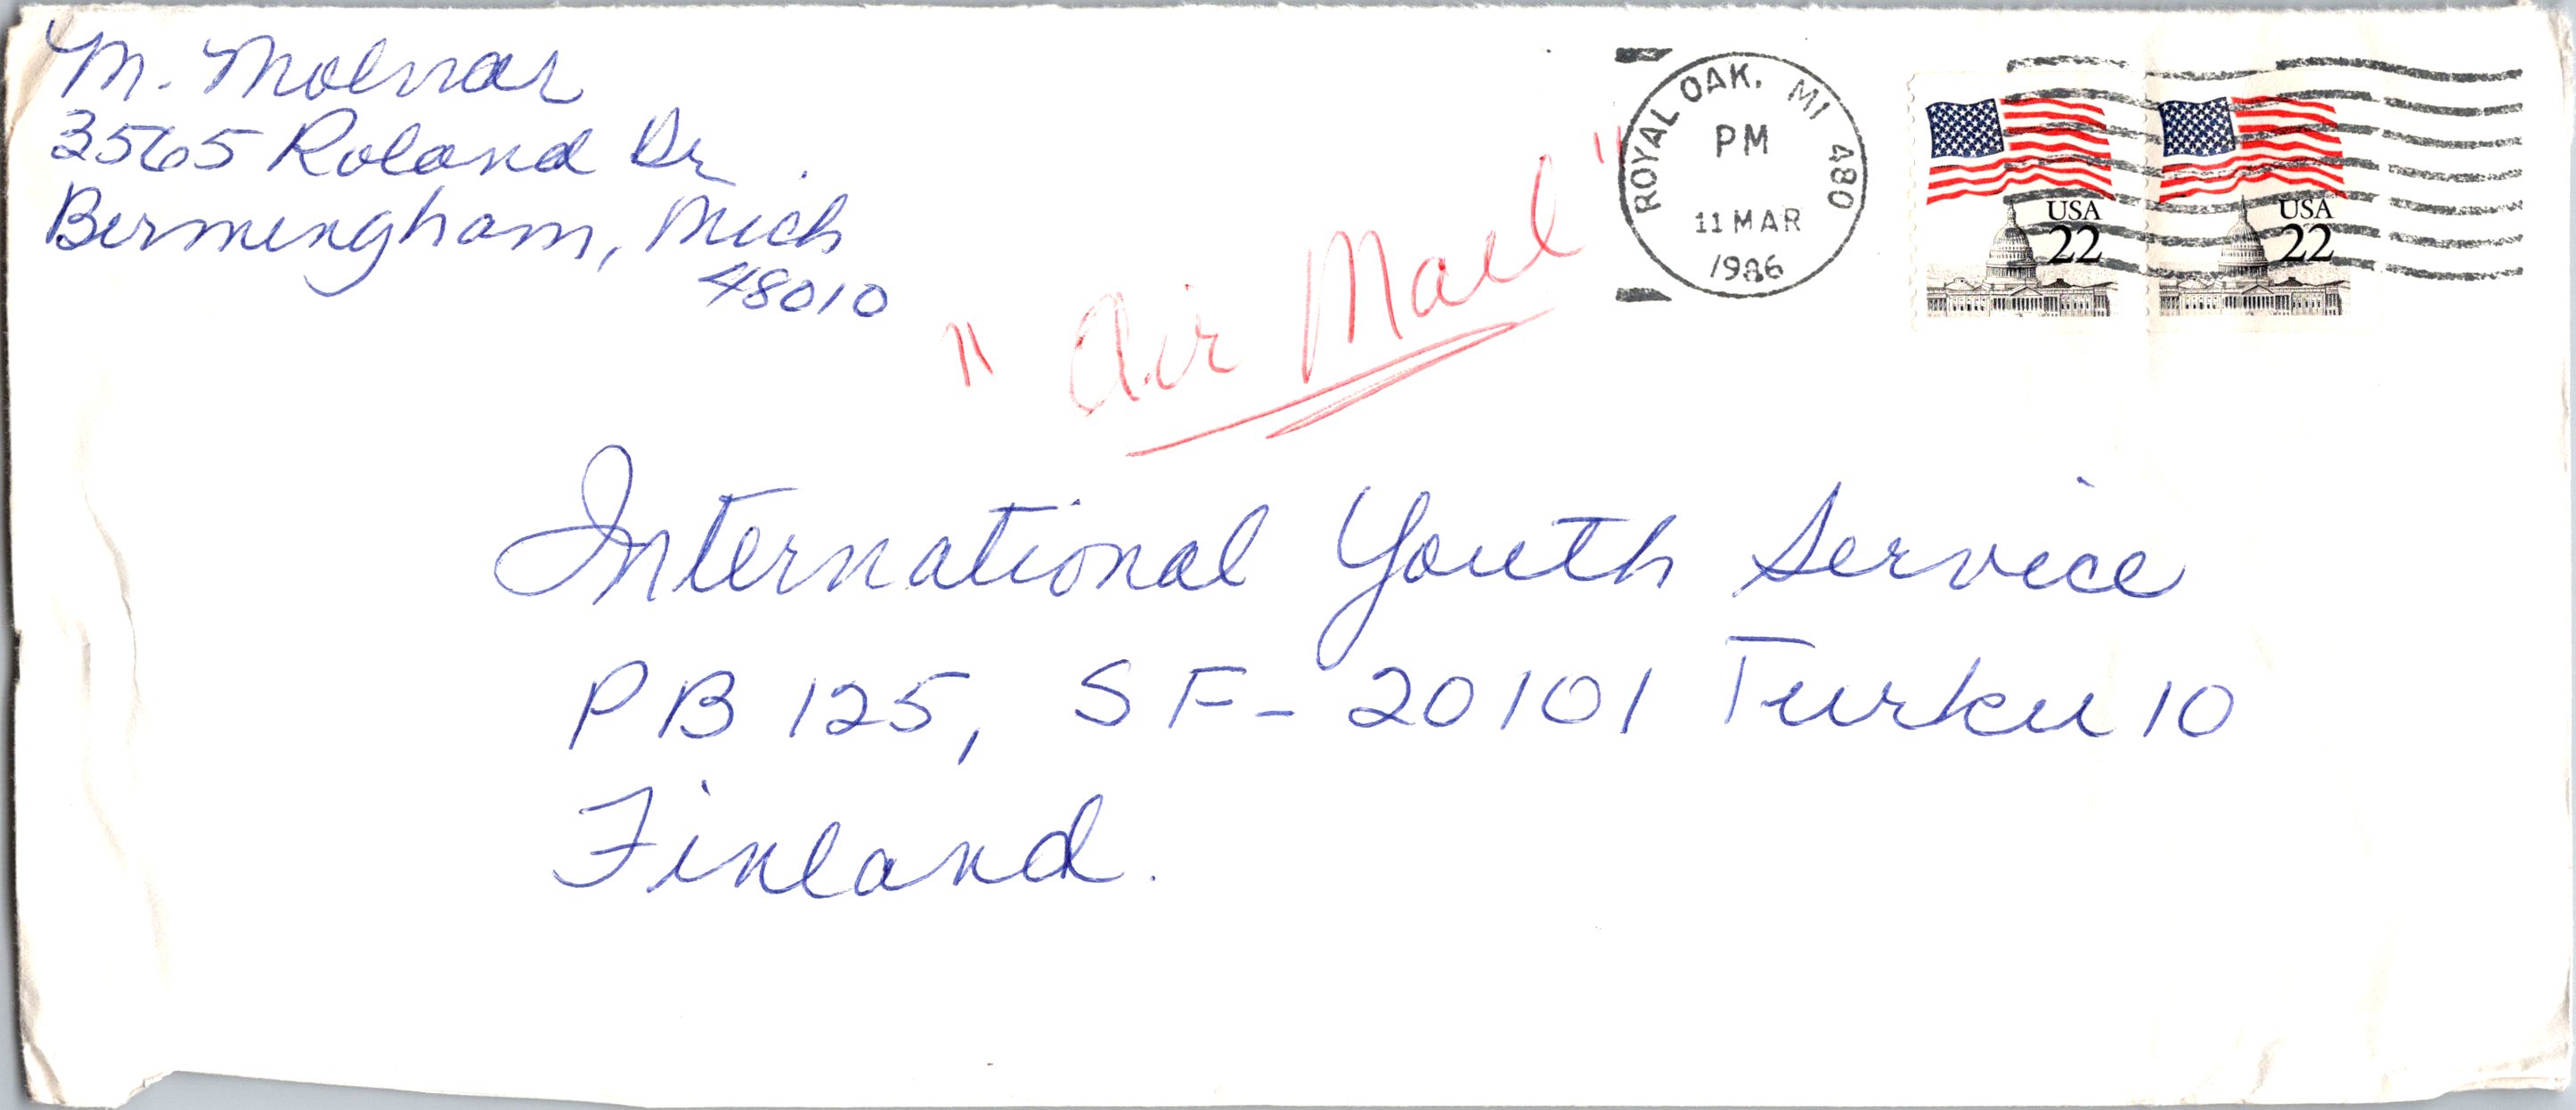 M. Molnar
3565 Roland Dr.
Birmingham, Mich
48010
"Air Mail"
ROYAL OAK, MI 480
PM
11 MAR
1986
USA
22
USA
22
International Youth Service
PB 125, SF-20101 Turku 10
Finland.